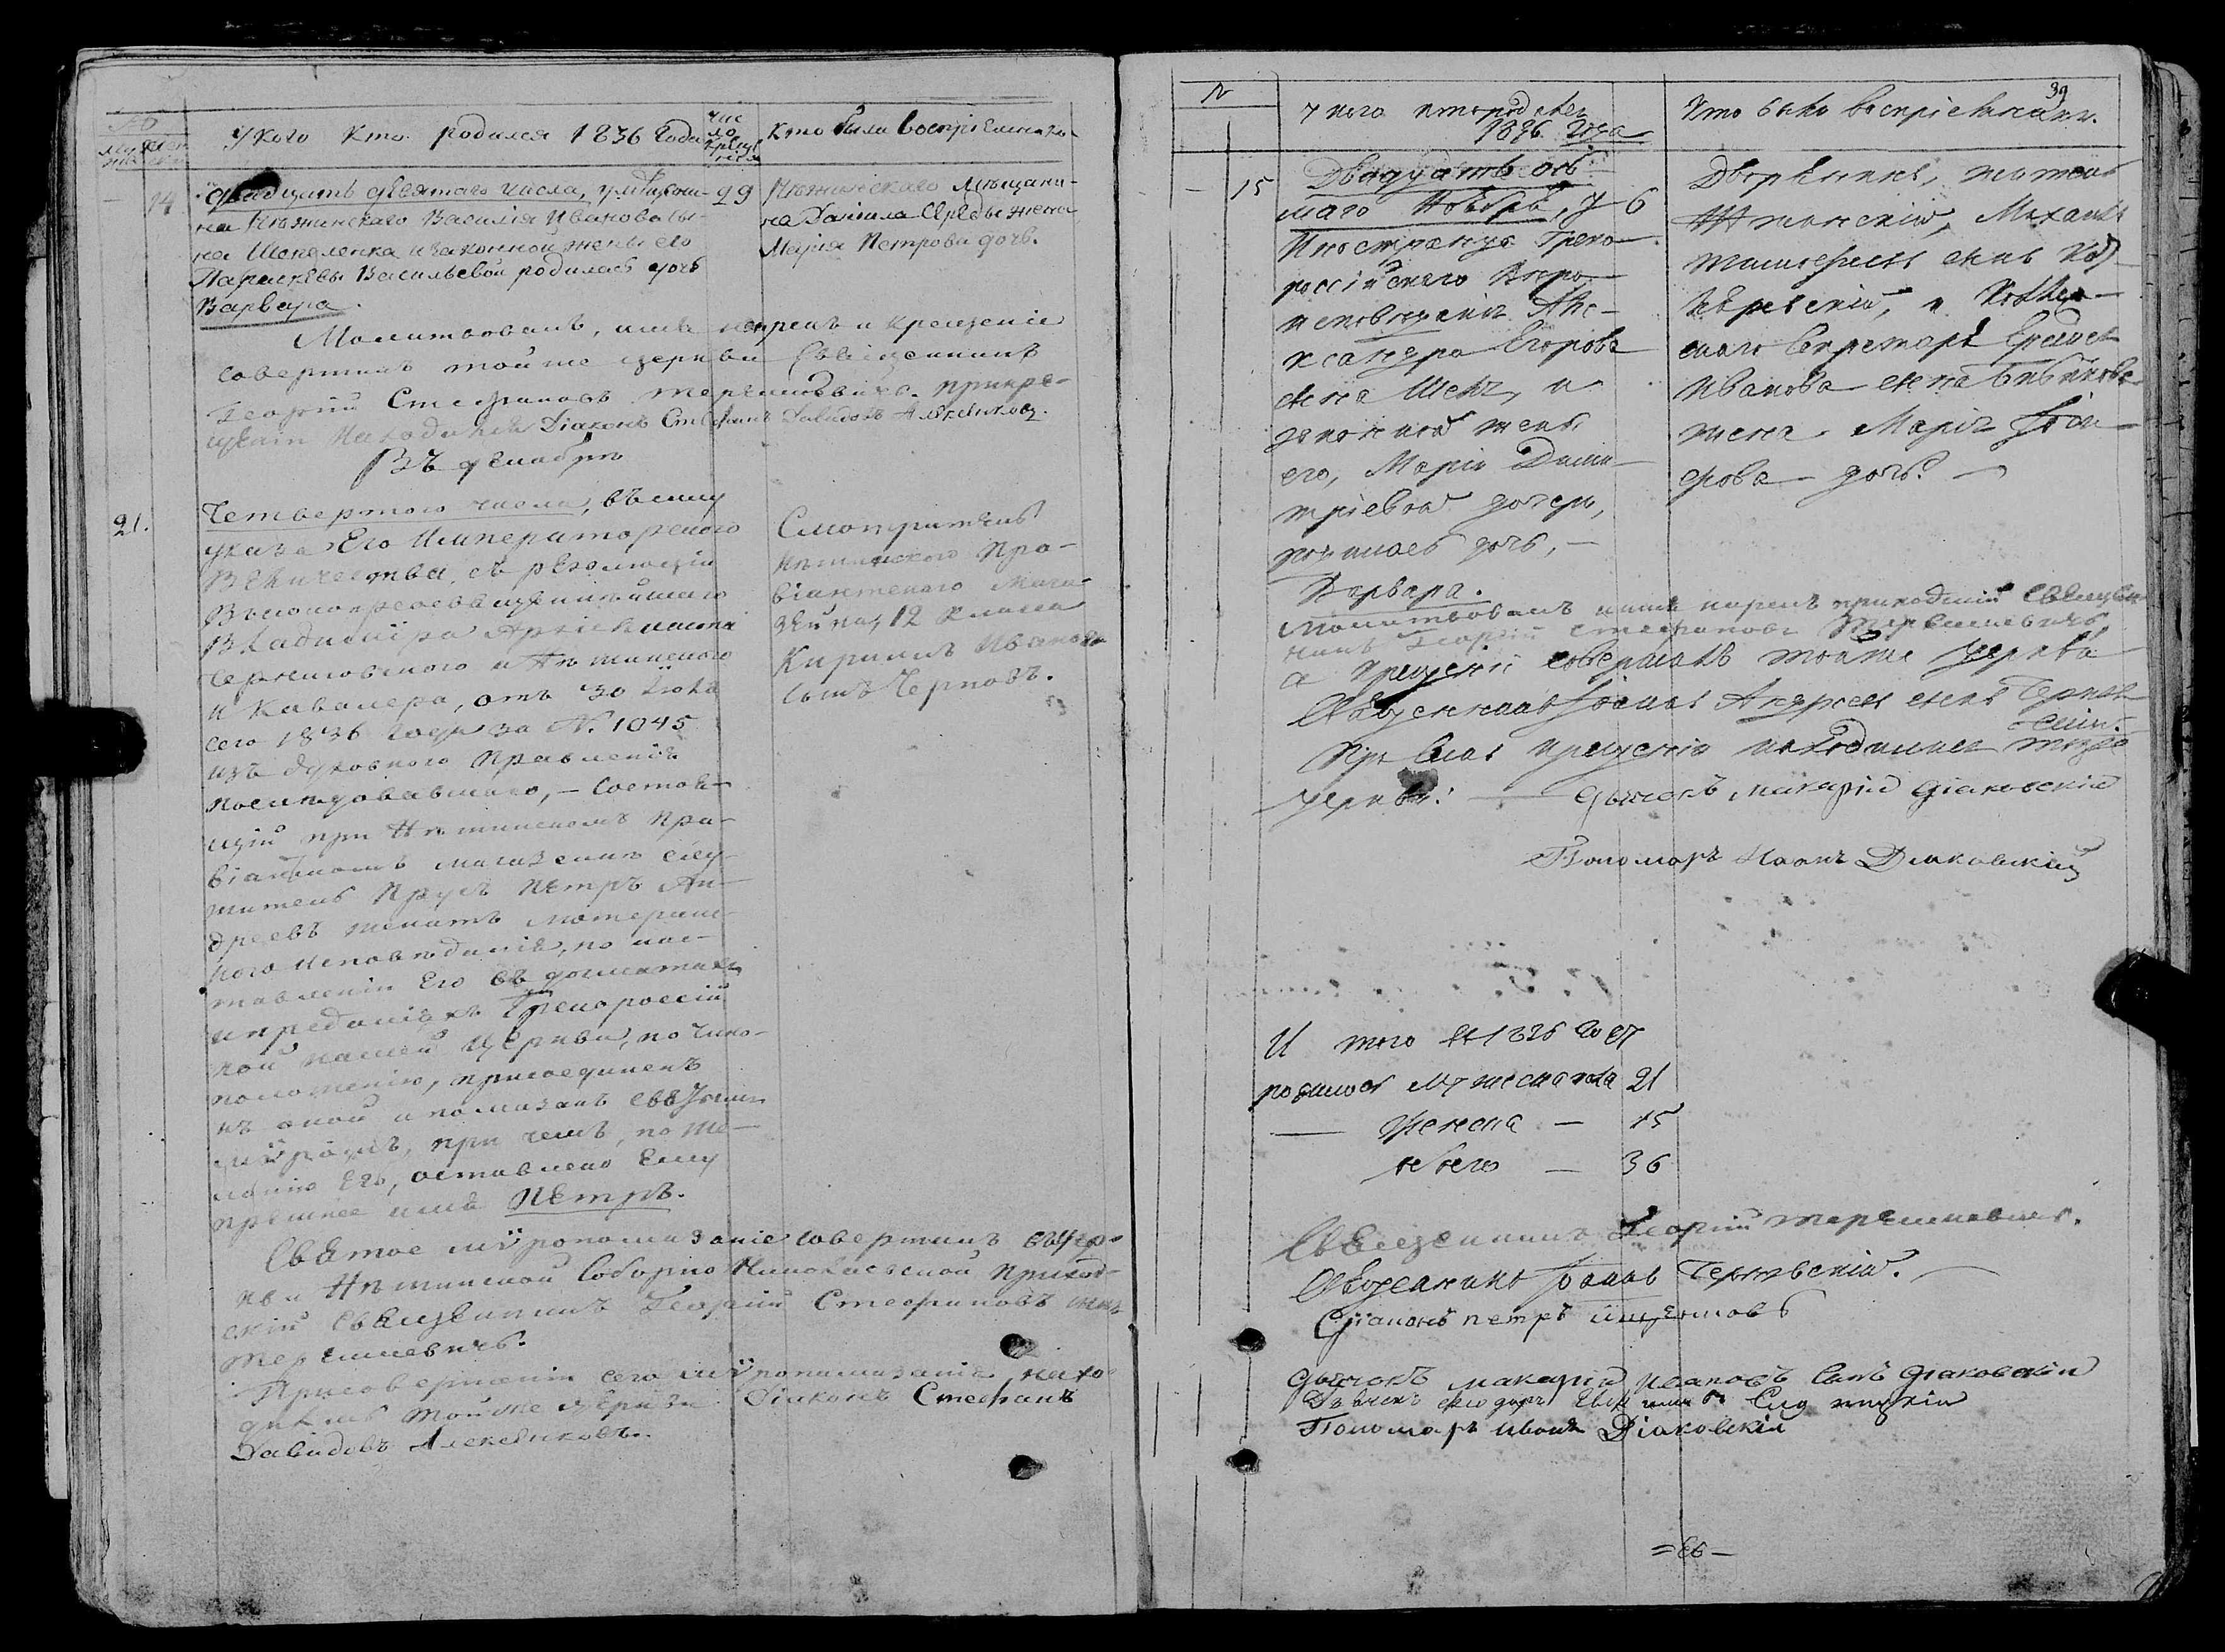 У кого Кто родился 1836 Года
Число крещения
Кто были восприемники
14
Двадцать девятаго числа, у мещани-
на Нѣжинскаго Василія Иванова сы-
на Шепеленка и законной жены его
Параскевы Васильевой родилась дочь
Варвара.
29
Нѣжинскаго Мѣщани-
на Даніила жена
Марія Петрова дочь.
Молитвовалъ, имя нарекъ и крещеніе
совершилъ тойже церкви Священникъ
Георгій Стефановъ Терешкевичъ. При кре-
щеніи находился Діаконъ Стефанъ Давидовъ
Въ декабрѣ
21.
Четвертого числа, въ силу
указа Его Императорского
Величества, съ резолюціи
Высокопреосвященнѣйшаго
Владиміра Архіепископа
Черниговского и Нѣжинского
и Кавалера, отъ 30 Іюля
сего 1836 года за N. 1045
изъ духовного Правленія
послѣдовавшаго, – состоя-
щій при Нѣжинскомъ Про-
віантскомъ магазеинѣ слу-
житель Прусъ Петръ Ан-
дреевъ женатъ лютеран-
ского исповѣданія, по нас-
тавленіи Его въ догматахъ
и преданіяхъ Грекороссій-
кой нашей Церкви, по чино-
положенію, присоединенъ
къ оной и помазанъ Святымъ
мѵромъ, при чемъ, по же-
ланію Его, оставлено Ему
прежнее имя Петръ.
Смотритель
Нѣжинского Про-
віантского мага-
зейна, 12 класса
Кириллъ Ивановъ
сынъ Черновъ.
Святое мѵропомазаніе совершилъ въ Цер-
кви Нѣжинской Соборно Николаевской приход-
скій Священникъ Георгій Стефановъ сынъ
Терешкевичъ.
При совершеніи сего мѵропомазанія нахо-
дился тойже церкви Діаконъ Стефанъ
Давидовъ
N
У кого кто родился
1836 Года
39
Кто были воспріемники.
15
Двадцать ось-
маго Ноября, у
Иностранца Греко-
россійского Вѣро-
исповѣданія Але-
ксандра Егорова
сына и
законной жены
его, Маріи Дими-
тріевой дочери,
родилась дочь, –
Варвара.
6
Дворянинъ,
Михаилъ
сынъ
и
Секретаря
Иванова сына
жена Марія
дочь. –
Молитвовалъ имя нарекъ приходскій Священ-
никъ Георгій Стефановъ Терешкевичъ
а крещеніе совершилъ тояже церкви
Священникъ Іоаннъ Андреевъ сынъ
При семъ крещеніи находились тояже
церкви: – дьячокъ Макарій Діаковскій
Пономарь Иоанъ Диаковский
И того въ 1836 году
родилось мужеска пола 21
– женска – 15
всего – 36
Священникъ Георгій Терешкевичъ.
Священникъ Іоаннъ
Діаконъ Петръ
дьячокъ Макарій Ивановъ сынъ Діаковскій
Дьячекъ
Пономарь Иванъ Діаковскій